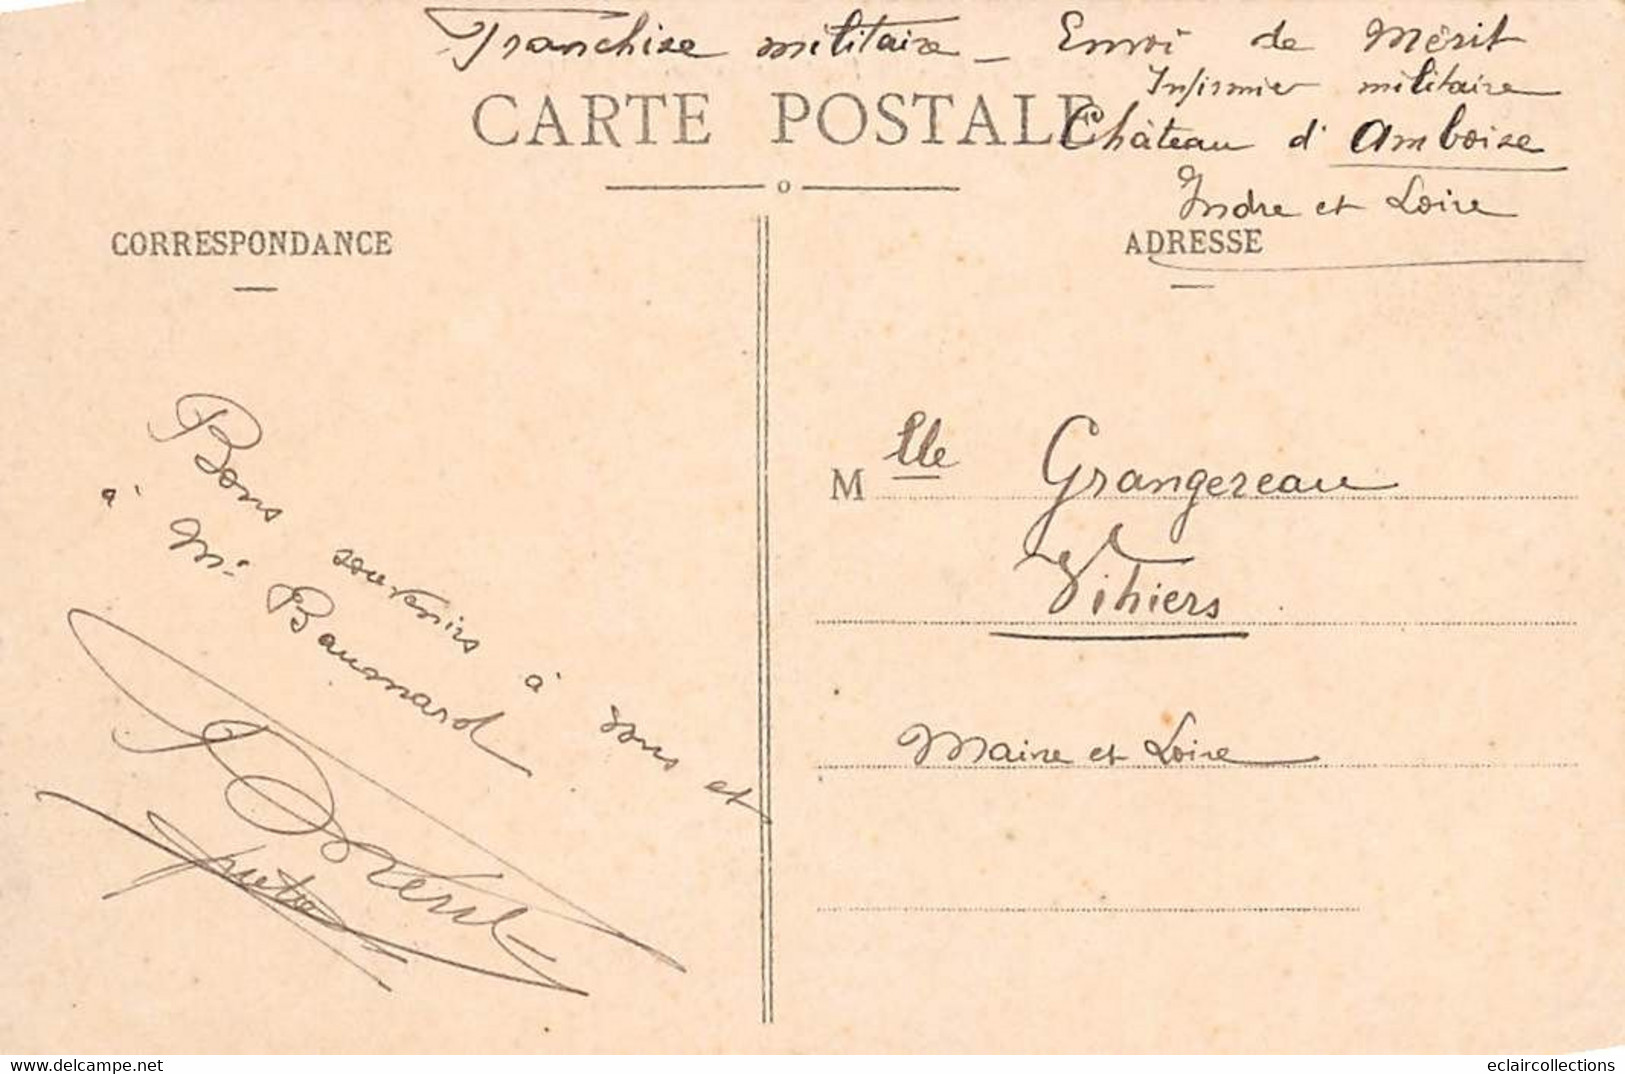 Franchise militaire - Envoi de Mérit
Infirmier militaire
CARTE POSTALE
Château d'Amboise
Indre et Loire
CORRESPONDANCE
ADRESSE
Bons souvenirs à vous et
à Mr Baumard
Mlle Grangereau
Vihiers
Maine et Loire
delcampe.net
eclaircollections